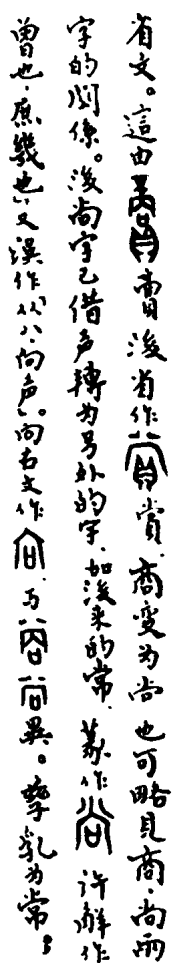 省文。這由賣後省作賞，商变为尚也可略見商、尚兩
字的関係。後尚字已借声轉为另外的字，如後来的常，篆作尚，許解作
曾也，庶幾也，又誤作从八，向声。向古文作向，与尚異。孳乳为常：